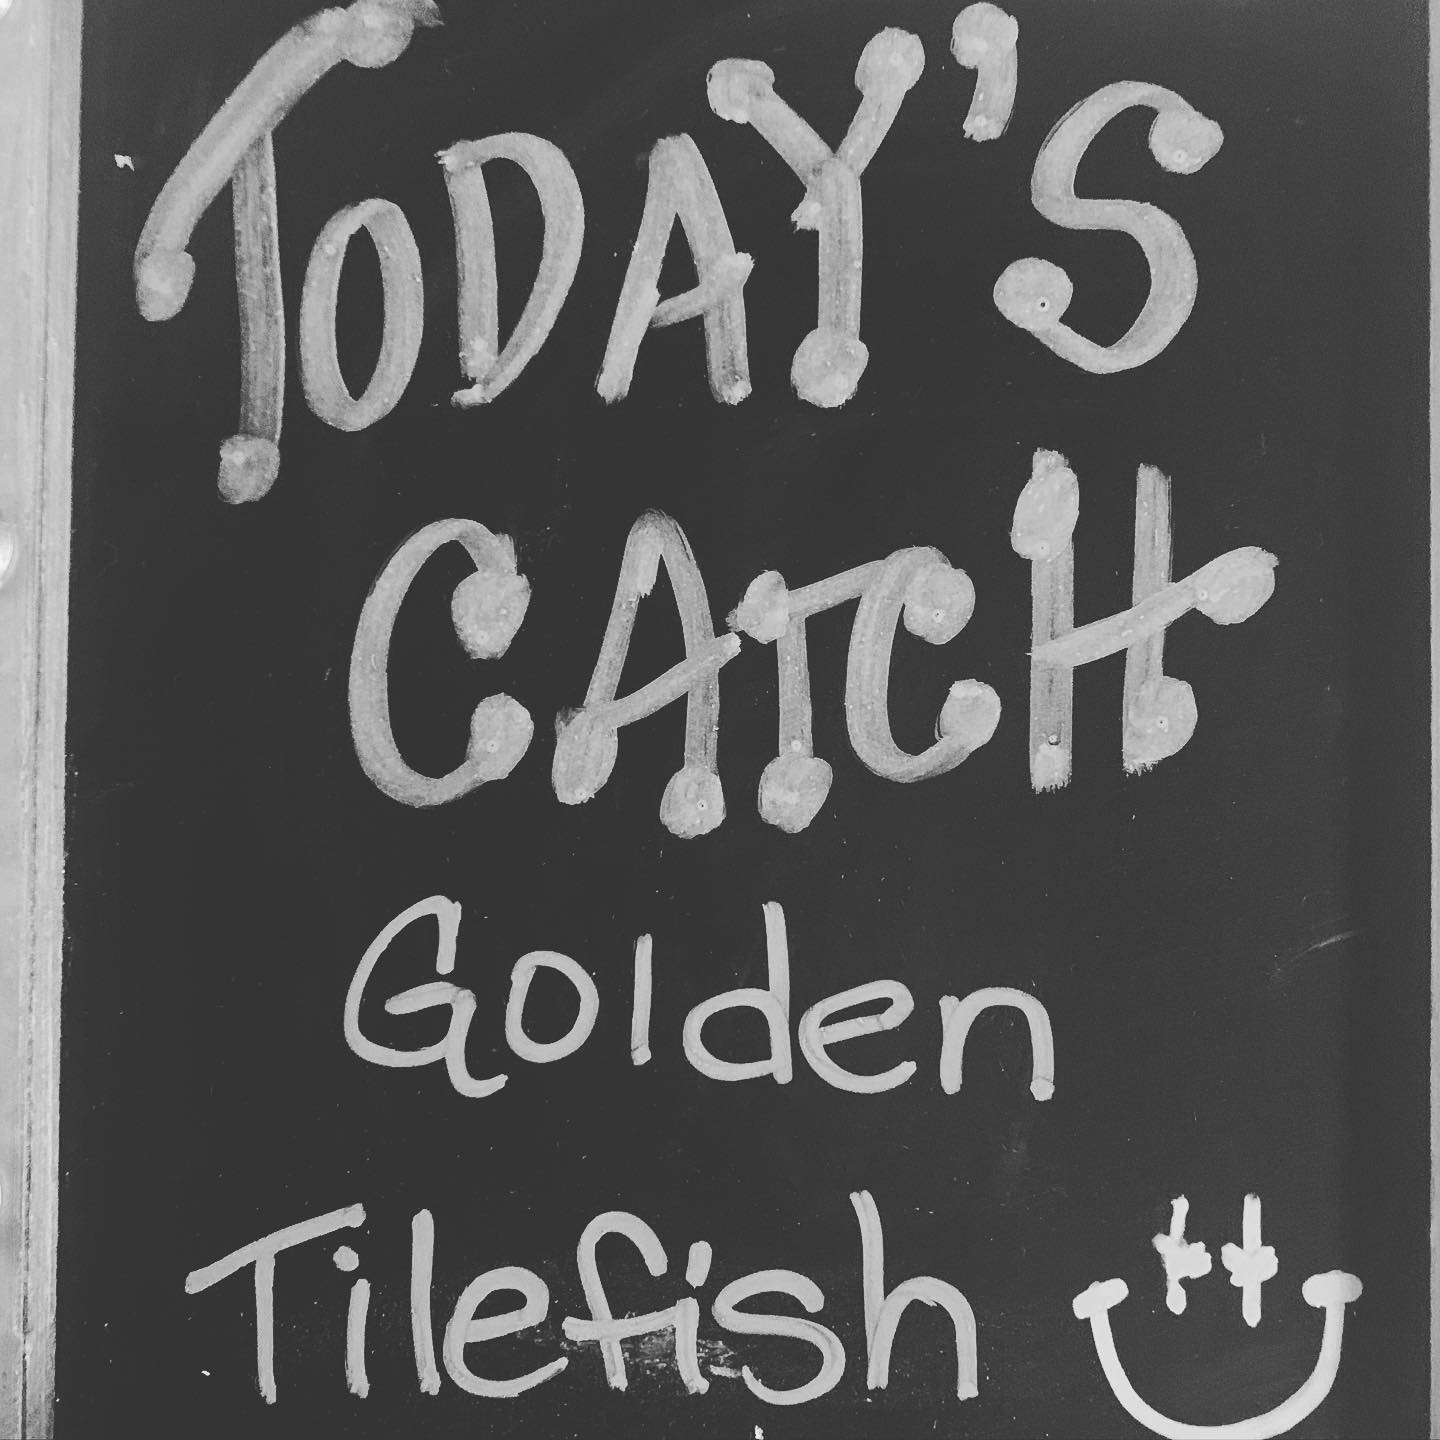 TODAY'S
CATCH
Golden
Tilefish